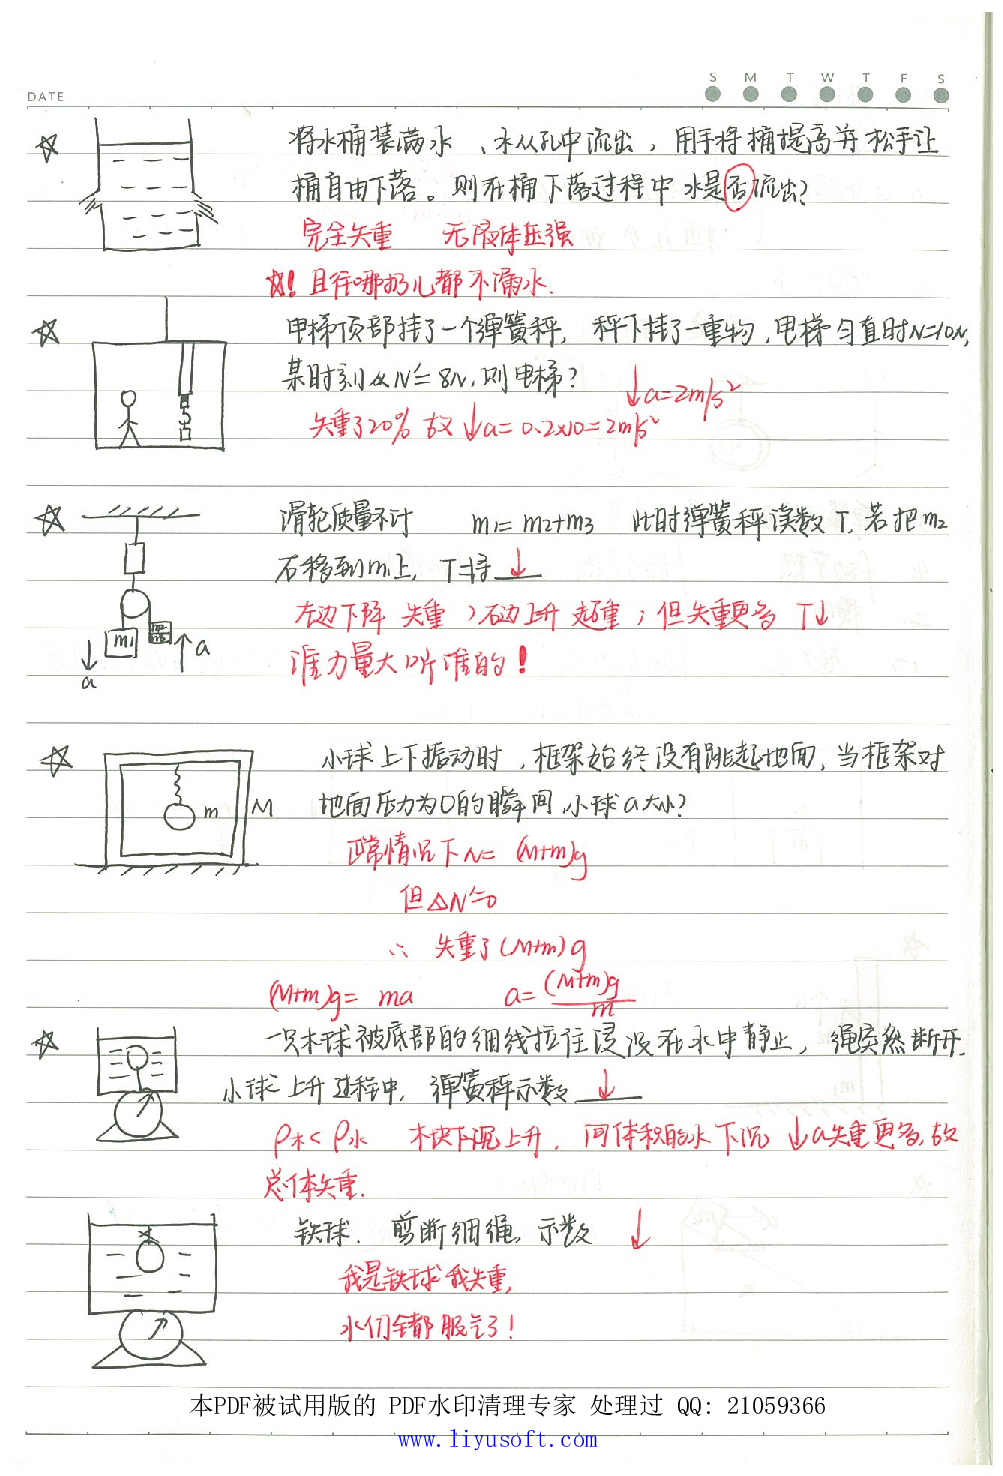 S M T W T F S
DATE
将水桶装满水、水从孔中流出，用手将桶提高并松手让
桶自由下落。则在桶下落过程中水是否流出?
完全失重 无液体压强
☆! 且往哪扔儿都不漏水.
电梯顶部挂了一个弹簧秤，秤下挂了一重物，电梯匀直时N=10N,
某时刻 N=8N,则电梯?
↓a=2m/s²
失重了20% 故↓a=0.2×10=2m/s²
滑轮质量不计 m1=m2+m3 此时弹簧秤读数T.若把m2
右移到m1上，T将 ↓
左边下降 失重 ；右边上升 超重；但失重更多 T↓
m1
a
a
谁力量大听谁的!
小球上下振动时，框架始终没有跳起地面，当框架对
m M
地面压力为0的瞬间,小球a大小?
正常情况下N= (M+m)g
但 N=0
∴ 失重了(M+m)g
(M+m)g= ma a=(M+m)g/m
一只木球被底部的细线拉住浸没在水中静止，绳突然断开.
小球上升过程中，弹簧秤示数 ↓
ρ木<ρ水 木块上升，同体积的水下沉 ↓a失重更多,故
总体失重.
铁球. 剪断细绳，示数 ↓
我是铁球我失重,
水们全都服气了!
本PDF被试用版的 PDF水印清理专家 处理过 QQ: 21059366
www.liyusoft.com